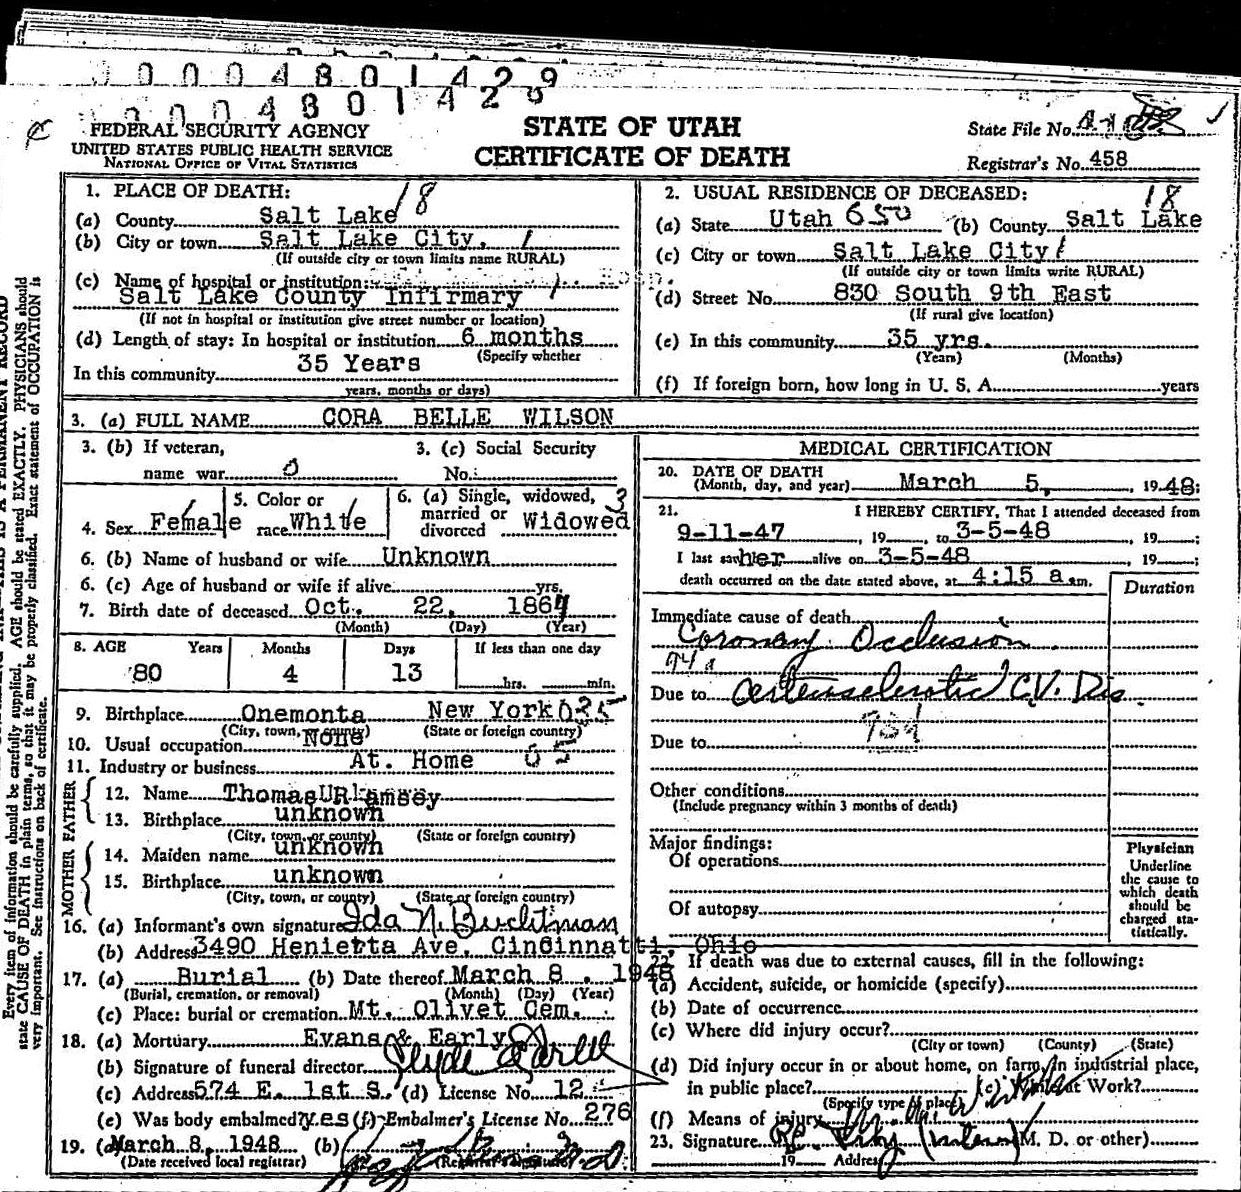 0 0 0 4 8 0 1 4 2 9
0 0 0 4 8 0 1 4 2 9
FEDERAL SECURITY AGENCY
UNITED STATES PUBLIC HEALTH SERVICE
NATIONAL OFFICE OF VITAL STATISTICS
STATE OF UTAH
CERTIFICATE OF DEATH
State File No.
Registrar's No. 458
1. PLACE OF DEATH: 18
(a) County Salt Lake
(b) City or town Salt Lake City. 1
(If outside city or town limits name RURAL)
(c) Name of hospital or institution:
Salt Lake County Infirmary 1
(If not in hospital or institution give street number or location)
(d) Length of stay: In hospital or institution 6 months
(Specify whether
In this community 35 Years
years, months or days)
2. USUAL RESIDENCE OF DECEASED: 18
(a) State Utah 650 (b) County Salt Lake
(c) City or town Salt Lake City 1
(If outside city or town limits write RURAL)
(d) Street No. 830 South 9th East
(If rural give location)
(e) In this community 35 yrs.
(Years) (Months)
(f) If foreign born, how long in U. S. A. years
3. (a) FULL NAME CORA BELLE WILSON
3. (b) If veteran,
name war 0
3. (c) Social Security
No.
4. Sex Female
5. Color or
race White
6. (a) Single, widowed, 3
married or
divorced Widowed
6. (b) Name of husband or wife Unknown
6. (c) Age of husband or wife if alive yrs.
7. Birth date of deceased Oct. 22, 1867
(Month) (Day) (Year)
8. AGE Years Months Days If less than one day
80 4 13 hrs. min.
9. Birthplace Onemonta New York 025
(City, town, or county) (State or foreign country)
10. Usual occupation None
11. Industry or business At. Home 05
FATHER
12. Name Thomas Ramsey
13. Birthplace unknown
(City, town, or county) (State or foreign country)
MOTHER
14. Maiden name unknown
15. Birthplace unknown
(City, town, or county) (State or foreign country)
16. (a) Informant's own signature Ida N. Buchtman
(b) Address 3490 Henietta Ave. Cincinnatti, Ohio
17. (a) Burial (b) Date thereof March 8, 1948
(Burial, cremation, or removal) (Month) (Day) (Year)
(c) Place: burial or cremation Mt. Olivet Cem.
18. (a) Mortuary Evans & Early
(b) Signature of funeral director
(c) Address 574 E. 1st S. (d) License No. 12
(e) Was body embalmed? yes (f) Embalmer's License No. 276
19. (a) March 8, 1948 (b)
(Date received local registrar) (Registrar's signature)
MEDICAL CERTIFICATION
20. DATE OF DEATH
(Month, day, and year) March 5, 1948;
21. I HEREBY CERTIFY, That I attended deceased from
9-11-47, 19 to 3-5-48, 19 ;
I last saw her alive on 3-5-48 19 ;
death occurred on the date stated above, at 4:15 a.m.
Duration
Immediate cause of death
Coronary Occlusion
94a
Due to arteriosclerotic C.V. Dis
93d
Due to
Other conditions
(Include pregnancy within 3 months of death)
Major findings:
Of operations
Of autopsy
Physician
Underline
the cause to
which death
should be
charged sta-
tistically.
22. If death was due to external causes, fill in the following:
(a) Accident, suicide, or homicide (specify)
(b) Date of occurrence
(c) Where did injury occur?
(City or town) (County) (State)
(d) Did injury occur in or about home, on farm, in industrial place,
in public place? (e) While at Work?
(Specify type of place)
(f) Means of injury
23. Signature (Intern) (M. D. or other)
19 Address
Every item of information should be carefully supplied. AGE should be stated EXACTLY. PHYSICIANS should
state CAUSE OF DEATH in plain terms, so that it may be properly classified. Exact statement of OCCUPATION is
very important. See instructions on back of certificate.